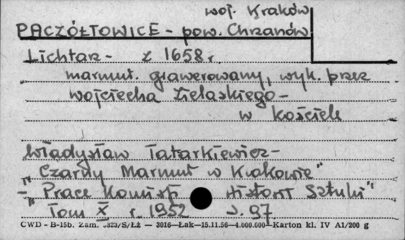 woj. Kraków
PACZÓŁTOWICE - pow. Chrzanów
Lichtarz - z 1658 r.
marmur. grawerowany, wyk. przez
Wojciecha Zielaskiego -
w kościele
Władysław Tatarkiewicz -
"Czarny Marmur w Krakowie"
- "Prace Komisji Histori Sztuki"
Tom X r. 1952 s. 97
CWD - B-15b. Zam. S/Łż — 2016—Łak—15.11.56—4.000.000—Karton kl. IV A1/200 g